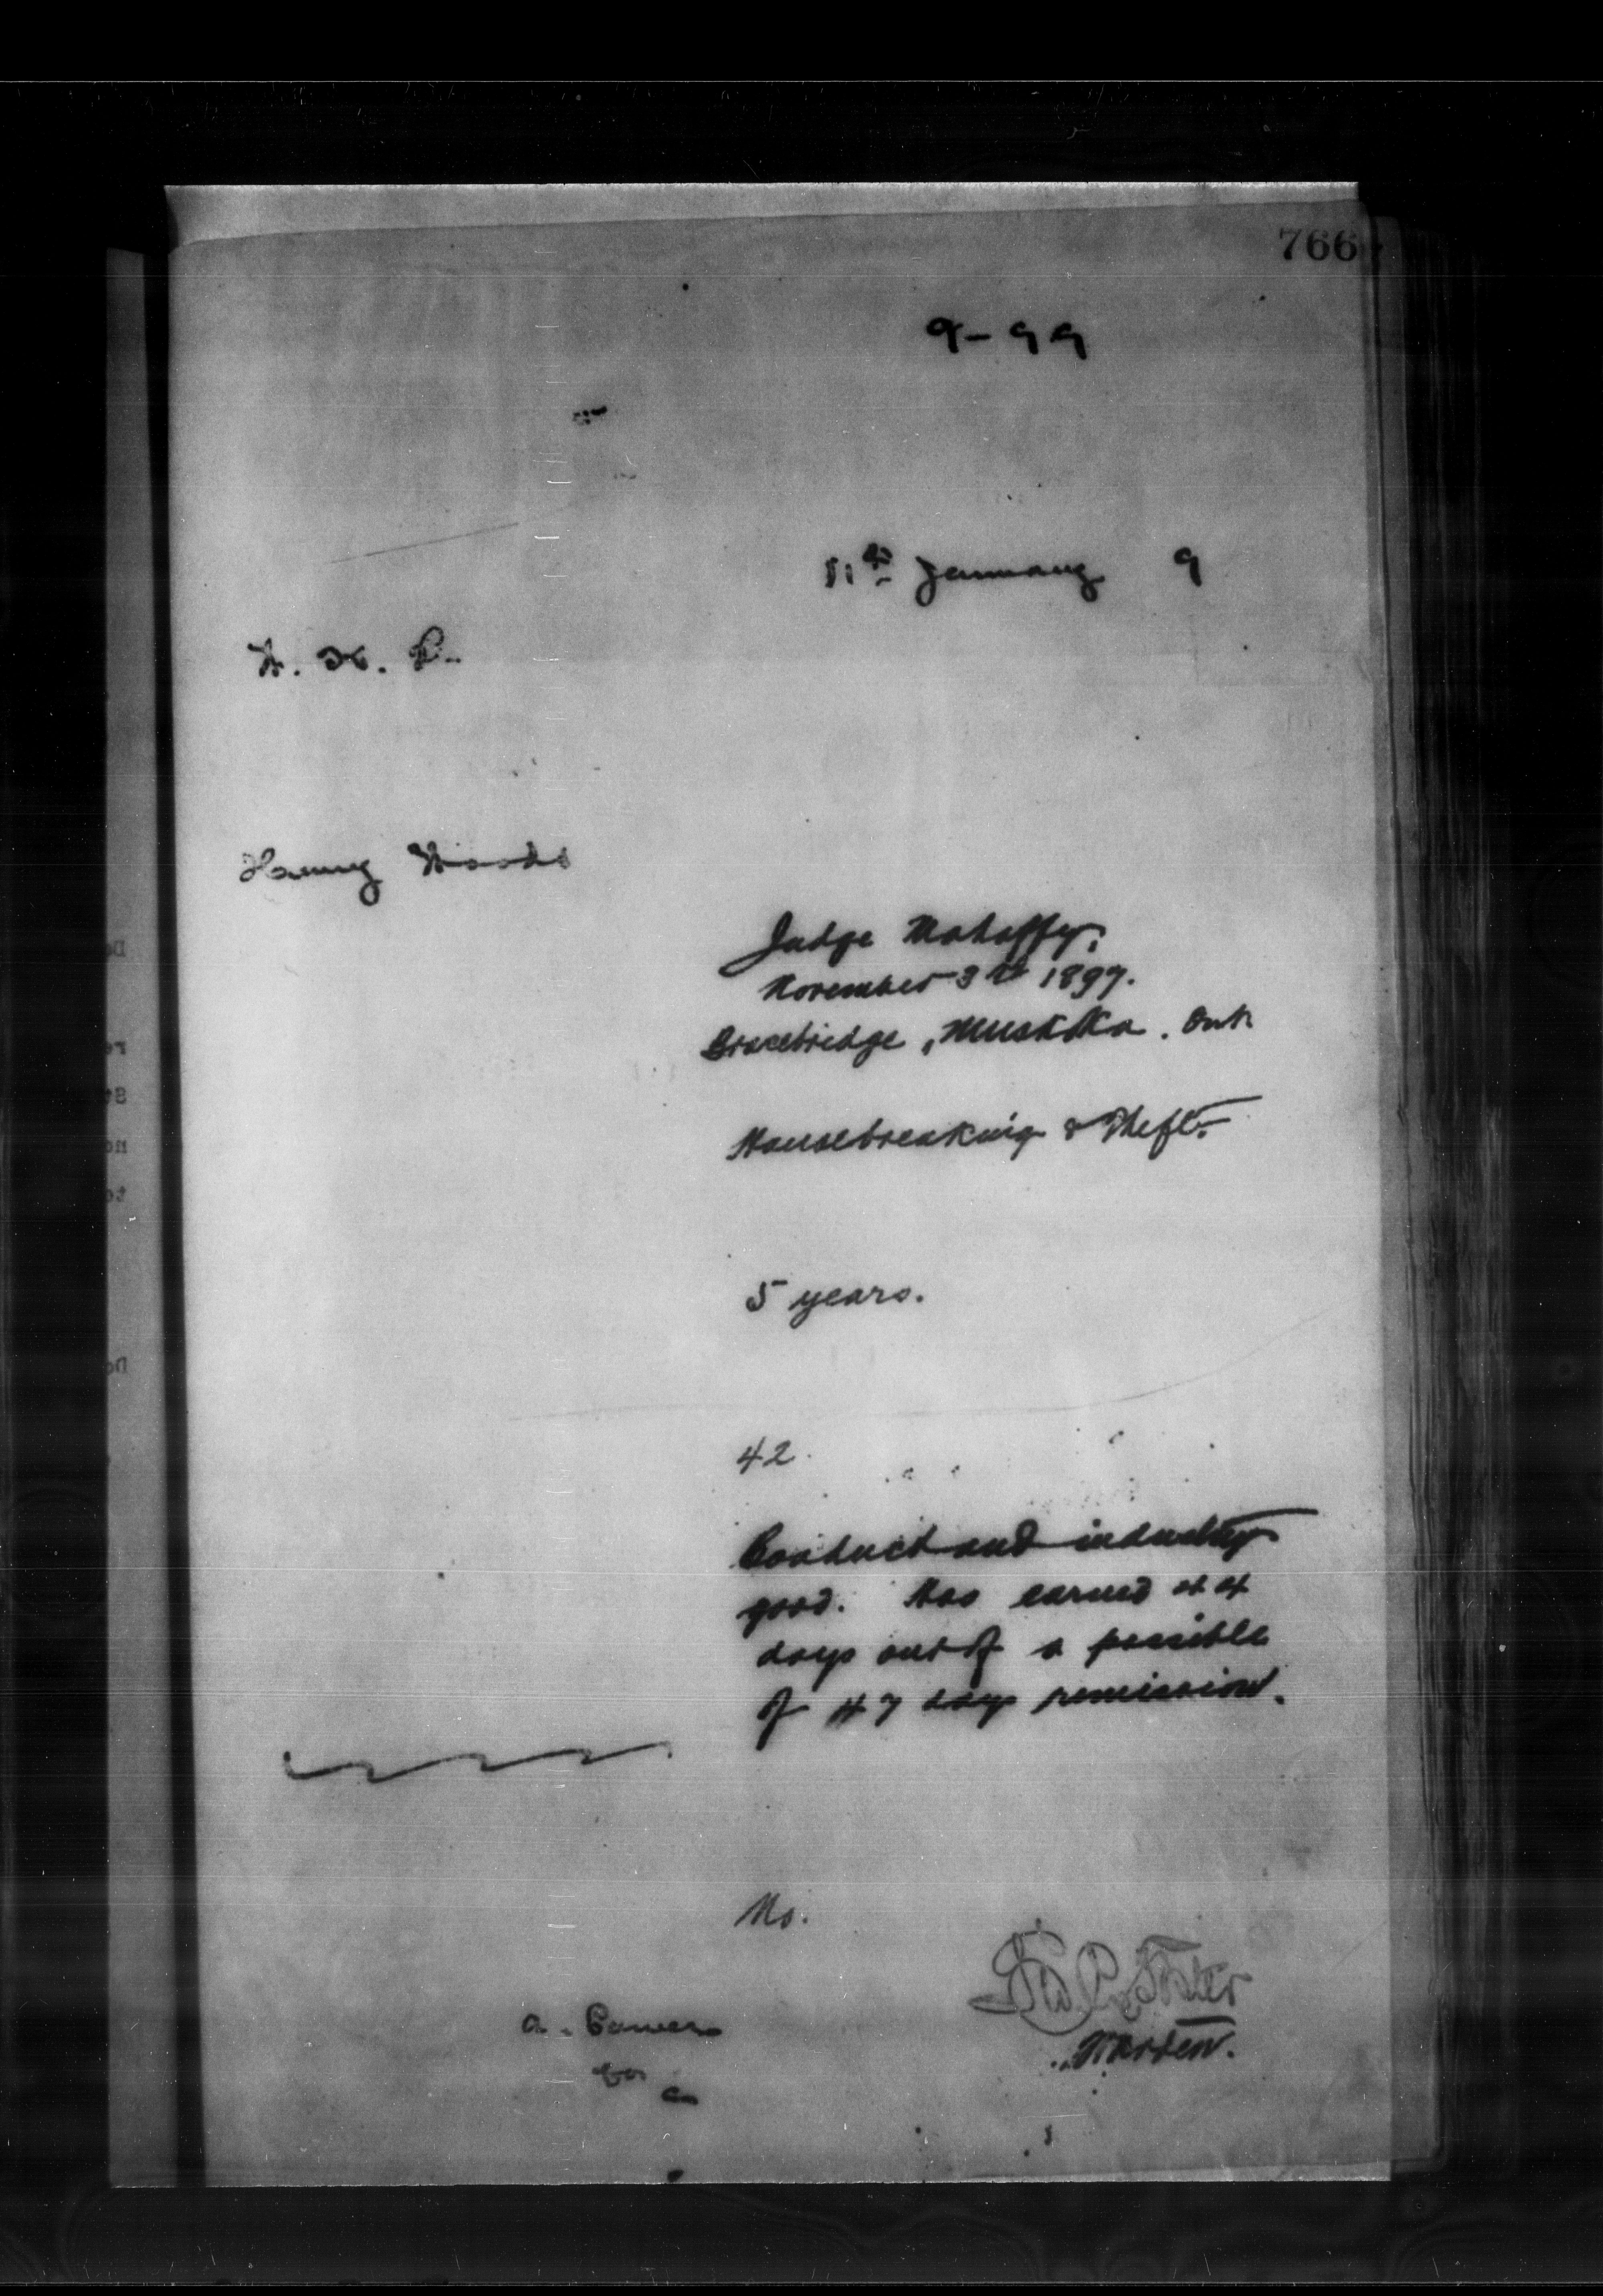 766
9-99
11th January 9
Henry Woods
Judge Mahaffy,
November 3rd 1897.
Bracebridge, Muskoka. Ont.
Housebreaking & Theft.
5 years.
42.
Conduct and industry
good. Has earned 44
days out of a possible
of 47 days remission.
No.
Warden.